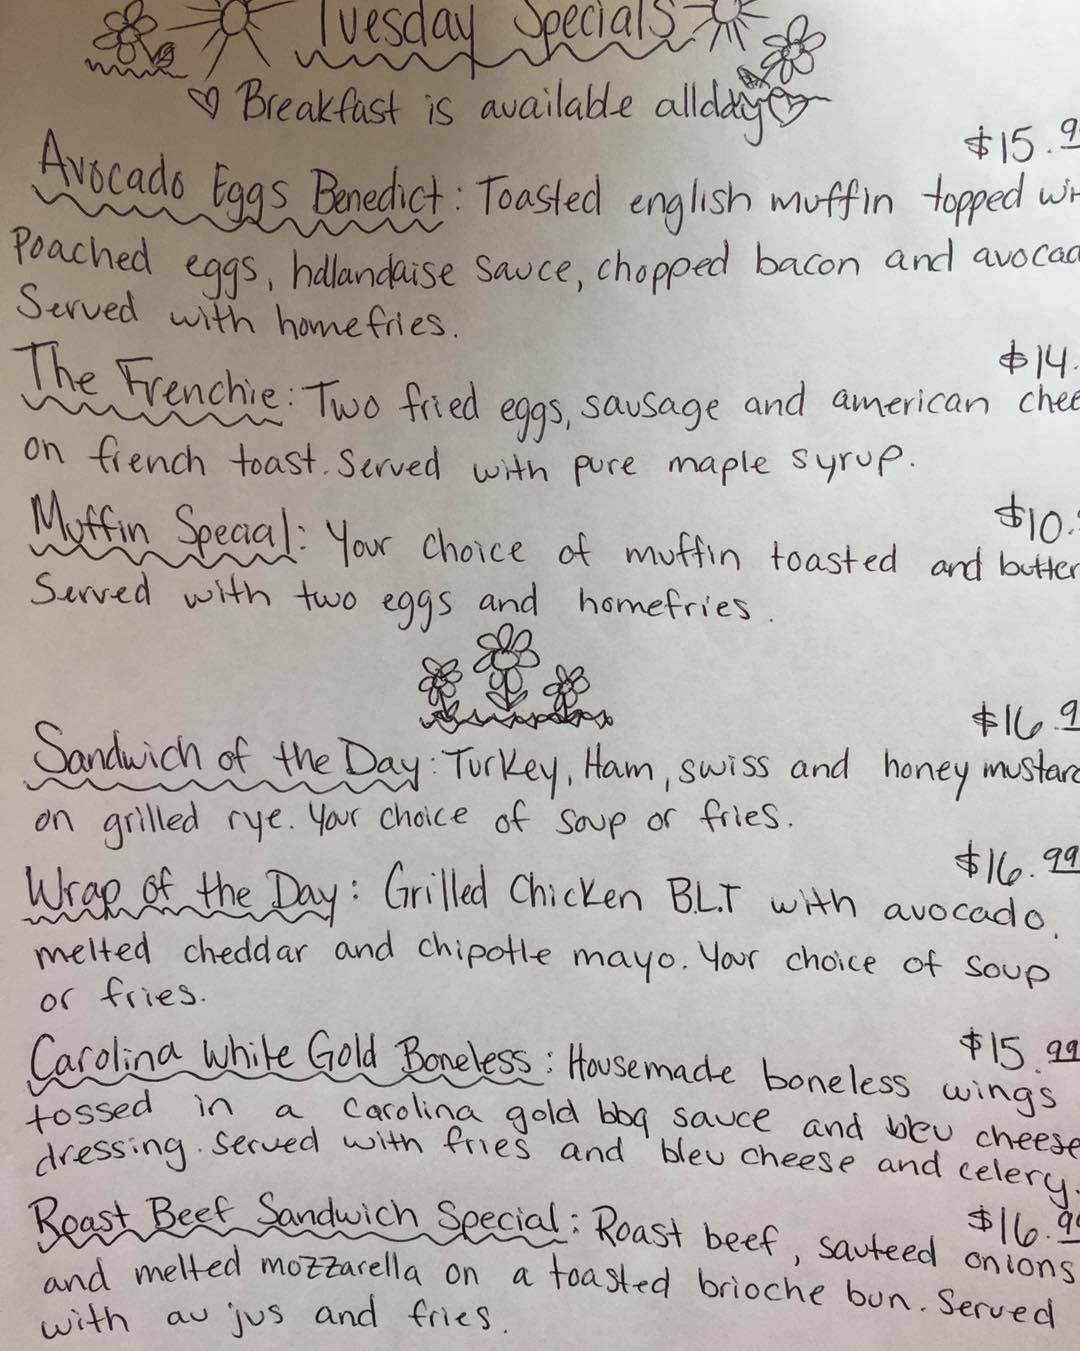 Tuesday Specials
Breakfast is available allday
$15.9
Avocado Eggs Benedict: Toasted english muffin topped wi
Poached eggs, hollandaise sauce, chopped bacon and avocad
Served with homefries.
$14.
The Frenchie: Two fried eggs, sausage and american chee
on french toast. Served with pure maple syrup.
$10.
Muffin Special: Your choice of muffin toasted and butter
Served with two eggs and homefries.
$16.9
Sandwich of the Day: Turkey, Ham, swiss and honey mustard
on grilled rye. Your choice of soup or fries.
$16.99
Wrap of the Day: Grilled Chicken B.L.T with avocado,
melted cheddar and chipotle mayo. Your choice of soup
or fries.
$15.99
Carolina White Gold Boneless: Housemade boneless wings
tossed in a carolina gold bbq sauce and bleu cheese
dressing. Served with fries and bleu cheese and celery.
$16.99
Roast Beef Sandwich Special: Roast beef, sauteed onions
and melted mozzarella on a toasted brioche bun. Served
with au jus and fries.